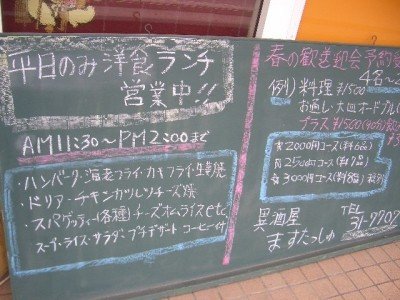 平日のみ洋食ランチ
営業中!!
AM11:30~PM2:00まで
・ハンバーグ・海老フライ・カキフライ・生姜焼
・ドリア・チキンカツレツチーズ焼
・スパゲッティー(各種)チーズオムライスetc
スープ・ライス・サラダ・プチデザート コーヒー付
春の歓送迎会予約
4名~
例)料理 ¥1500
お通し・大皿オードブル
プラス¥1500(90分
2000円コース(料6品)
2500円コース(料7品)
3000円コース(料8品)
居酒屋 TEL
ますたっしゅ 31-7707